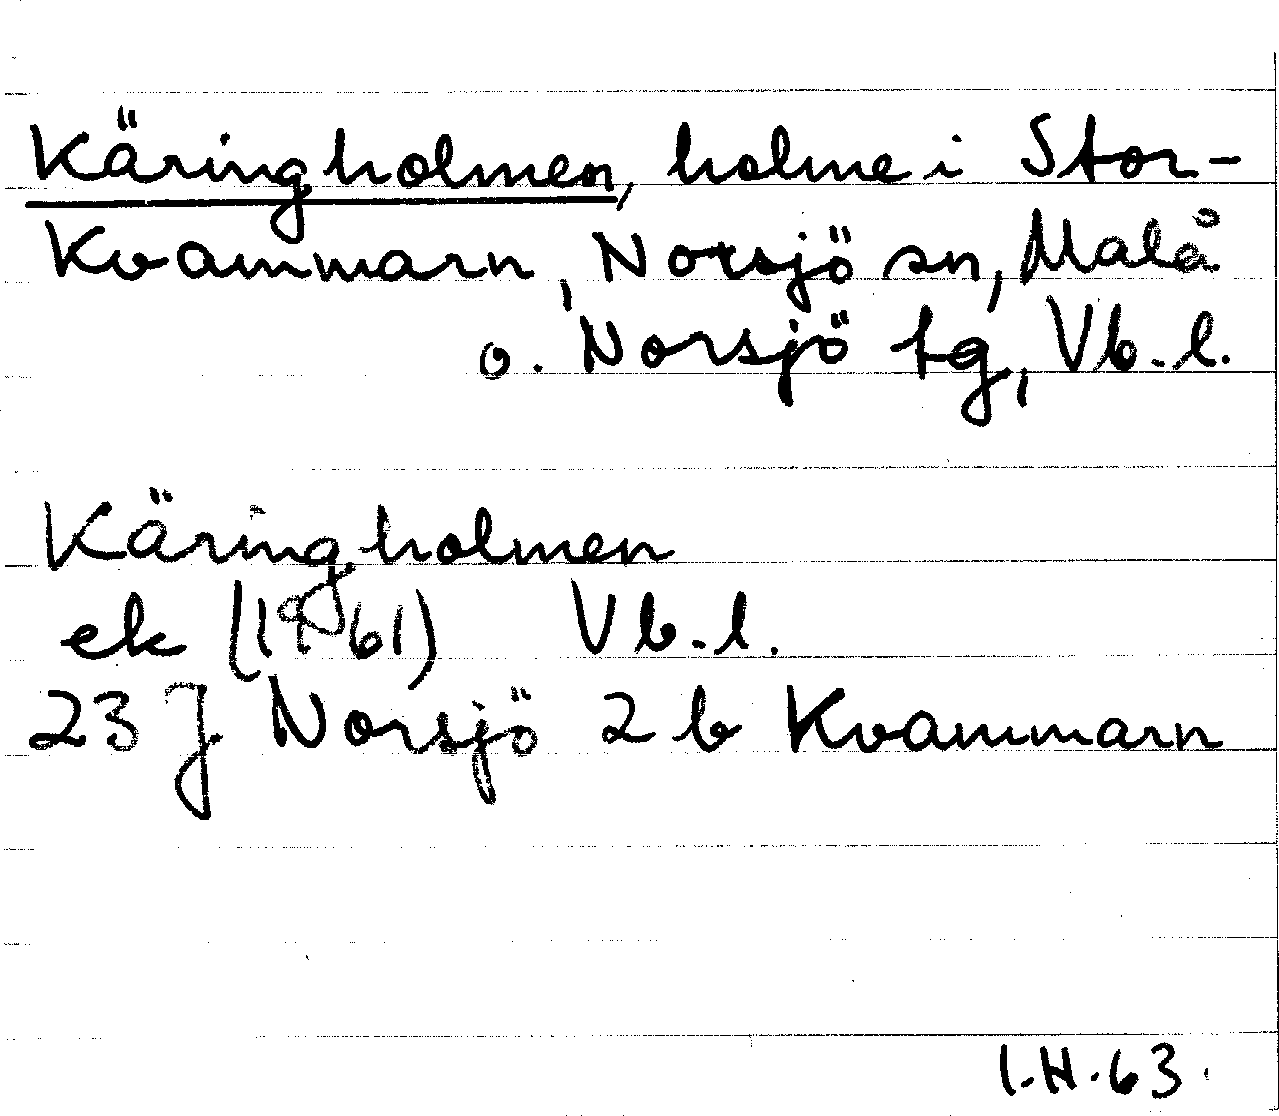 Käringholmen, holme i Stor-
Kvammarn, Norsjö sn, Malå
o. Norsjö tg, Vb.l.
Käringholmen
ek (1961) Vb.l.
23 J Norsjö 2 b Kvammarn
I.H.63.